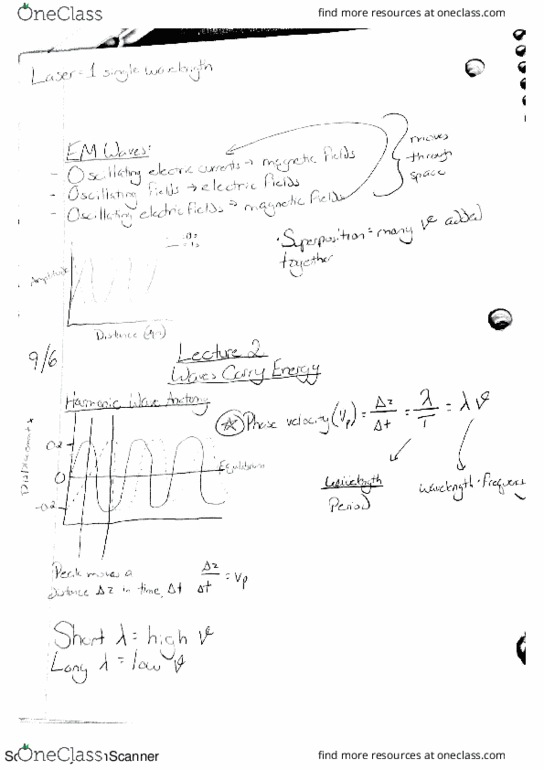 OneClass
find more resources at oneclass.com
Laser = 1 single wavelength
EM Waves:
- Oscillating electric currents → magnetic fields
- Oscillating fields → electric fields
- Oscillating electric fields → magnetic fields
moves
through
space
· Superposition = many ν added
together
Amplitude
Distance
9/6
Lecture 2
Waves Carry Energy
Harmonic Wave Anatomy
Phase velocity (Vp) = Δz/Δt = λ/T = λν
Displacement
0.2
0
-0.2
Equilibrium
Wavelength
Period
wavelength · frequency
Peak moves a
distance Δz in time, Δt
Δz/Δt = Vp
Short λ = high ν
Long λ = low ν
OneClass
Scanner
find more resources at oneclass.com